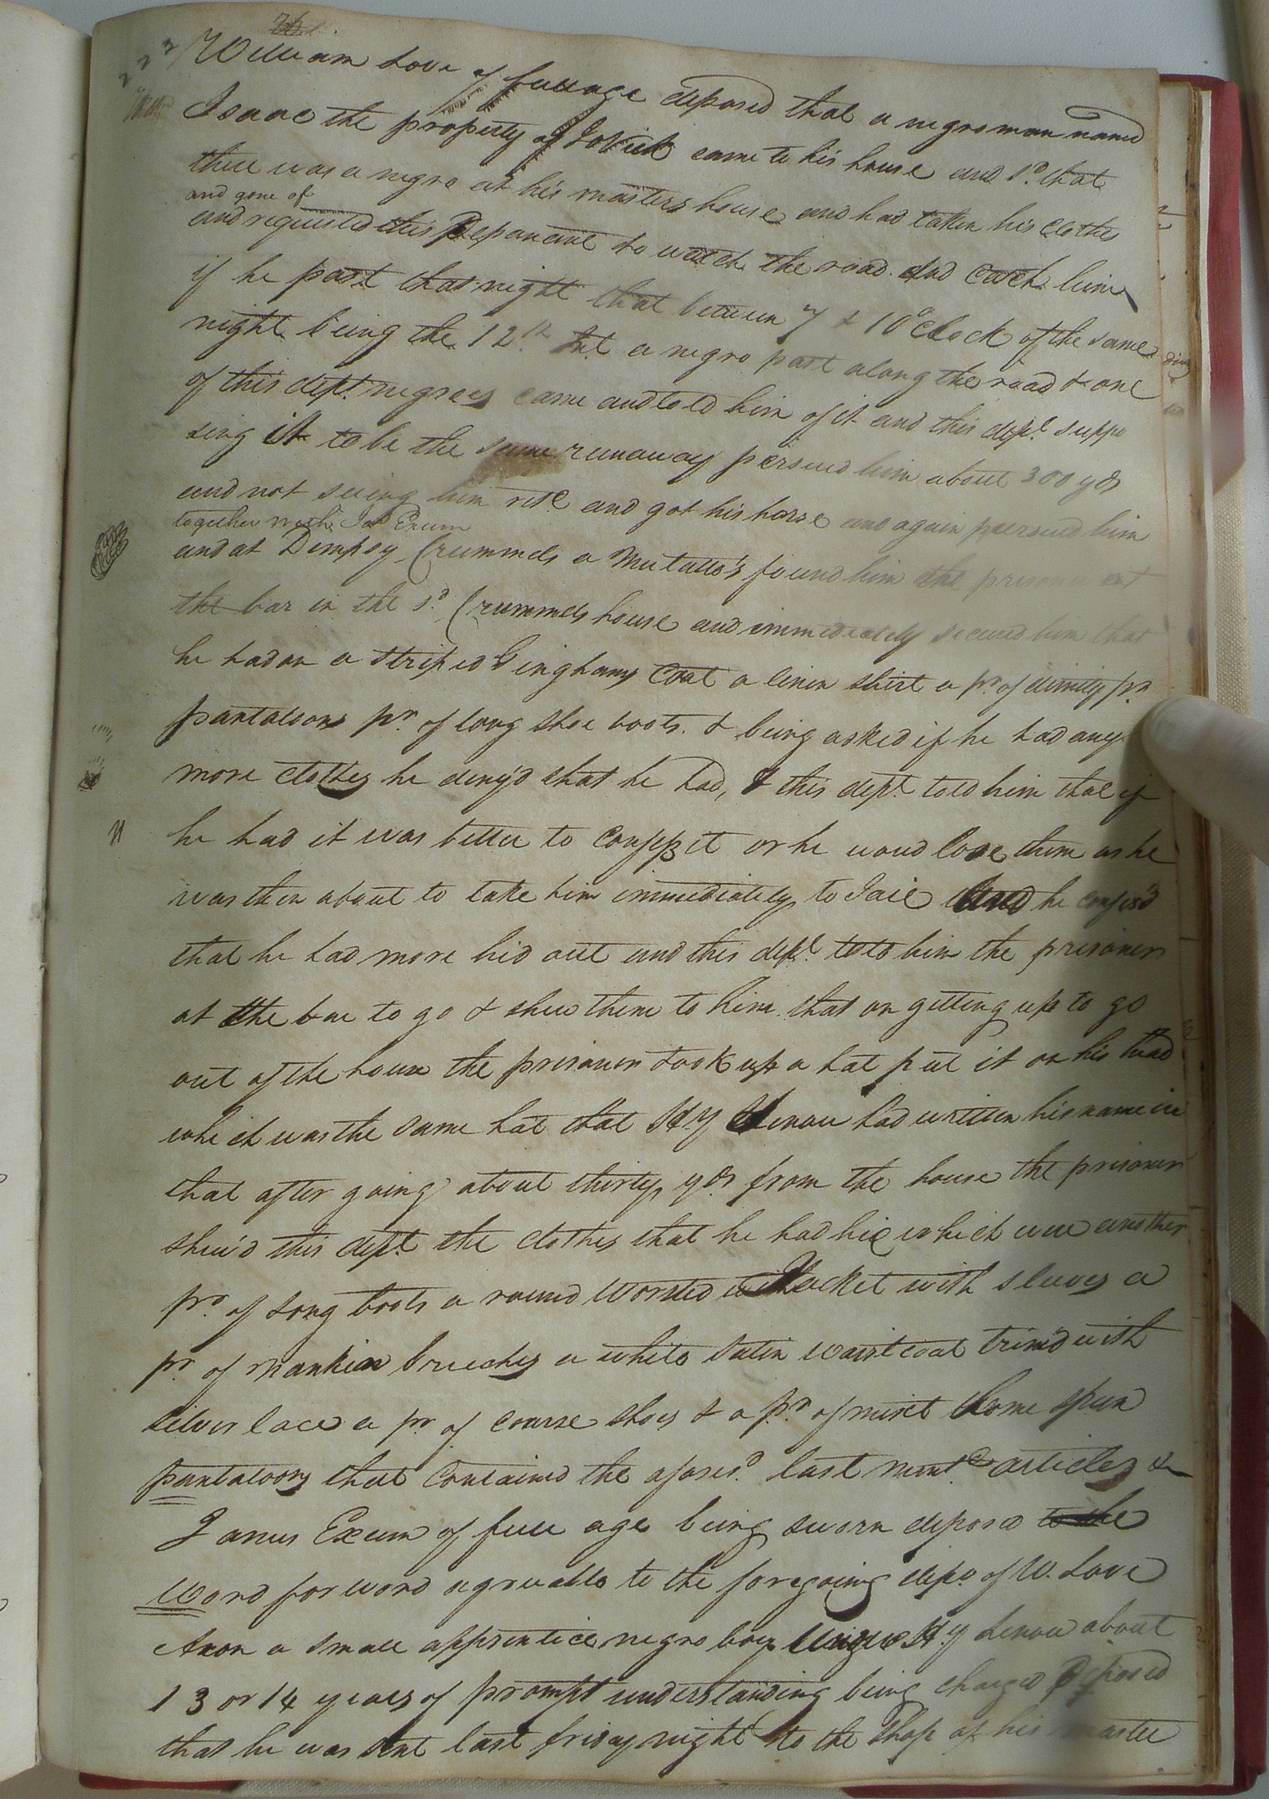 223
William Love of full age deposed that a negro man named
Isaac the property of came to his house and sd. that
there was a negro at his masters house and had taken his clothes
and gone of
and requested this Deponant to watch the road and catch him
if he past that night that between 7 & 10 oClock of the same
night being the 12th Int a negro past along the road & one
of this dept. negroes came and told him of it and this dept. suppo
sing it to be the same runaway persued him about 300 yds
and not seeing him rete and got his horse and again persued him
together with Jas Exum
and at Dempsy Crummels a Mutatto's found him the prisoner at
the bar in the sd. Crummels house and immediately secured him that
he had on a striped Gingham Coat a linin shirt a pr. of dimity pr.
pantaloons pr. of long shoe boots. & being asked if he had any
more clothes he deny'd that he had, & this dept. told him that if
he had it was better to confess it or he woud lose them as he
was then about to take him immediately to Jail he confes'd
that he had more hid out and this dept. told him the prisoner
at the bar to go & shew them to him. that on getting up to go
out of the house the prisoner took up a hat put it on his head
which was the same hat that Hy had written his name in
that after going about thirty yds from the house the prisoner
shew'd this dept. the clothes that he had hid which were another
pr. of long boots a round worsted Jacket with sleeves a
pr. of Nankin breeches a white satin waistcoat trim'd with
silver lace a pr. of coarse shoes & a pr. of mixt home spun
pantaloons that contained the aforesd. last mentd. articles &
James Exum of full age being sworn deposed to the
word for word agreeable to the foregoing depo. of W. Love
a small apprentice negro boy Hy about
13 or 14 years of prompt understanding being charged Deposed
that he was sent last friday night to the shop of his master